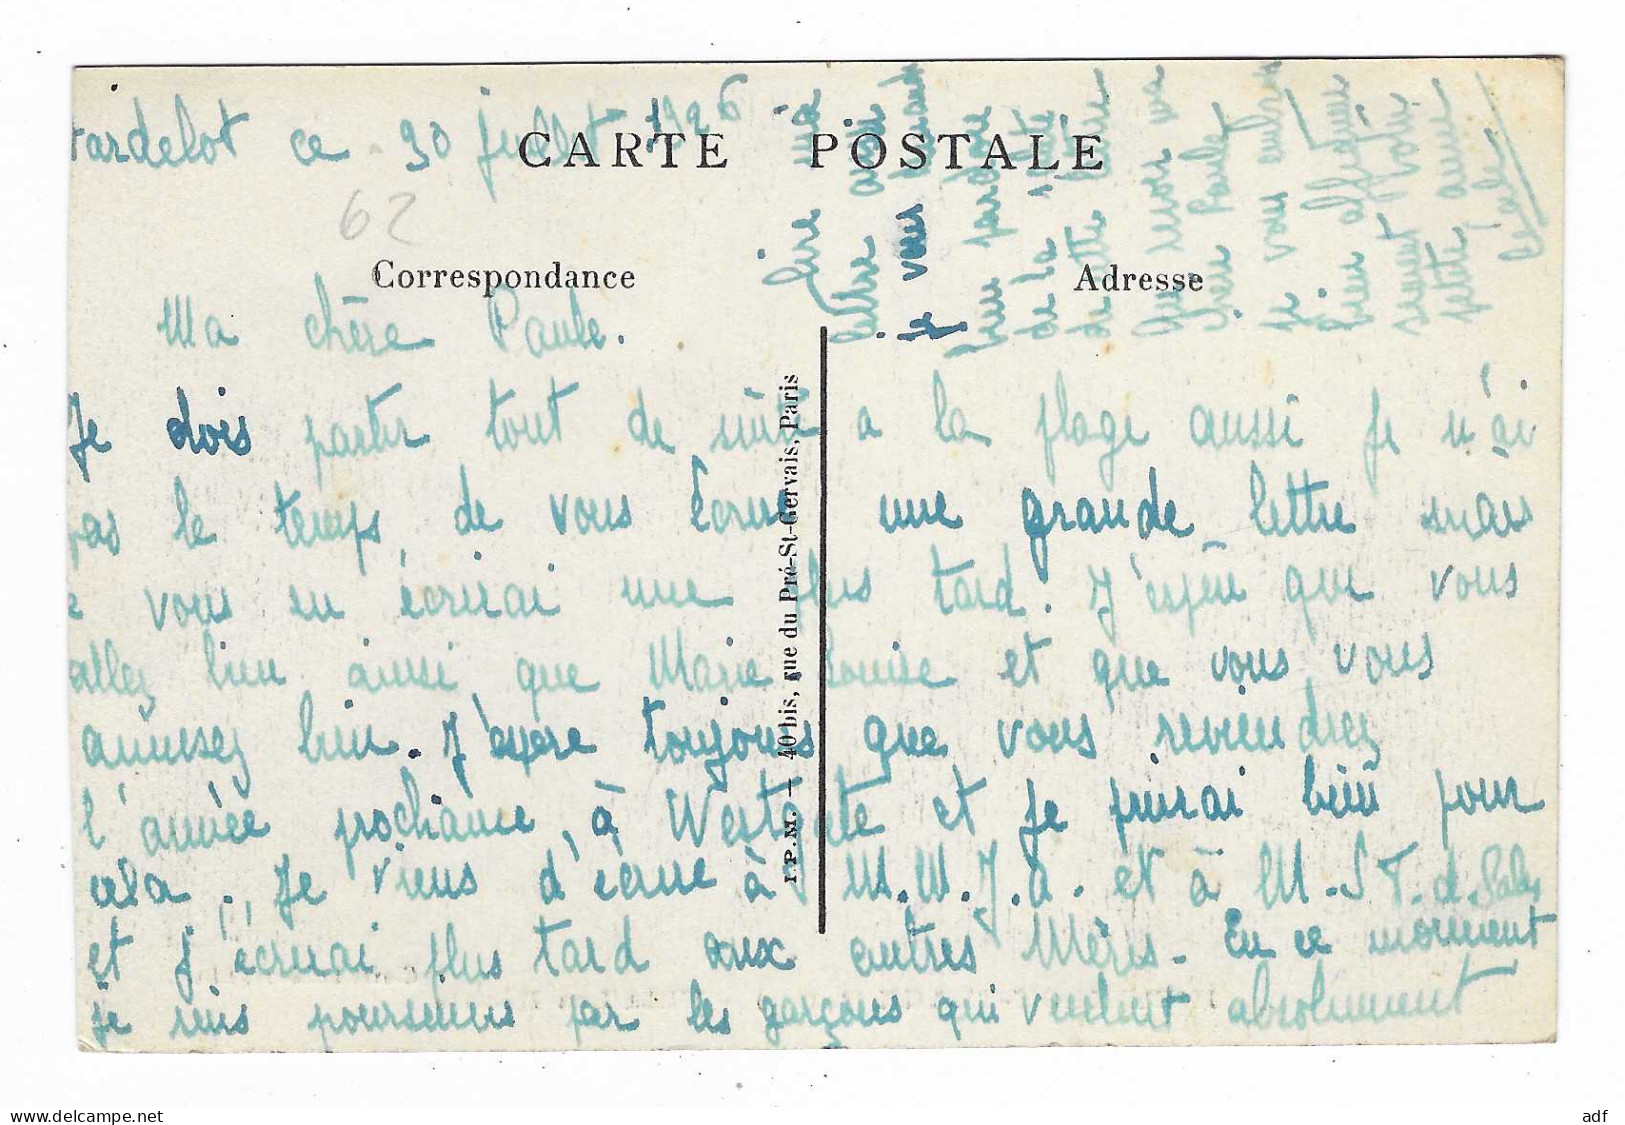 Hardelot ce 30 juillet 1926
CARTE POSTALE
62
Correspondance
Adresse
Ma chère Paule.
Je dois partir tout de suite a la plage aussi je n'ai
pas le temps de vous écrire une grande lettre mais
je vous en écrirai une plus tard. J'espère que vous
allez bien ainsi que Marie Louise et que vous vous
amusez bien. J'espère toujours que vous reviendrez
l'année prochaine, à Westgate et je prierai bien pour
cela. Je viens d'écrire à M. M. J. A. et à M. S T. d. Sales
et j'écrirai plus tard aux autres Mères. En ce moment
je suis poursuivie par les garçons qui veulent absolument
lire ma
lettre aussi
je vous demande
bien pardon
de la
de cette lettre
Au revoir ma
chère Paule
je vous embrasse
bien affectueu
sement Votre
petite amie
I.P.M. — 40 bis, rue du Pré-St-Gervais, Paris
adf